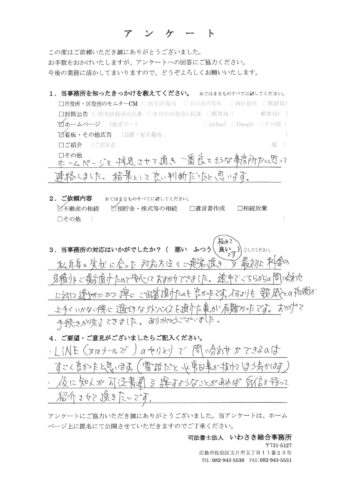 アンケート
この度はご依頼いただき誠にありがとうございました。
お手数をおかけいたしますが、アンケートへの回答にご協力ください。
今後の業務に活かしてまいりますので、どうぞよろしくお願いいたします。
1．当事務所を知ったきっかけを教えてください。 あてはまるものすべてに☑してください。
□市役所・区役所のモニターCM
□封筒広告
☑ホームページ
☑看板・その他広告
□ご紹介
□その他
ホームページを拝見させて頂き一番良さそうな事務所だと思って
連絡しました。結果として良い判断だったと思います。
2．ご依頼内容 あてはまるものすべてに☑してください。
☑不動産の相続 ☑預貯金・株式等の相続 □遺言書作成 □相続放棄
□その他（ ）
3．当事務所の対応はいかがでしたか？（ 悪い ふつう 良い ）
私共の実状に合った対応方法をご提案頂き 又最初に料金の
見積りもご提示頂けたので安心しておまかせできました。途中でこちらからの問い合わせ
に対し速やかにかつ丁寧にご回答頂けたのも良かったです。何よりも親戚との
上手くいかない時に適切なアドバイスを頂けた事が有難かったです。おかげで
手続きが完了できました。ありがとうございました。
4．ご要望・ご意見がございましたらご記入ください。
・LINE（又はメールで）のやりとりで 問い合わせができるのは
すごく良かったと思います（電話だと
・仮に知人が司法書士を探すようなことがあれば 自信を持って
紹介させて頂きたいです。
アンケートにご協力いただき誠にありがとうございます。当アンケートは、ホーム
ページ上に匿名にて公開させていただきますのでご了承ください。
司法書士法人 いわさき総合事務所
〒731-5127
広島市佐伯区五日市五丁目11番23号
TEL 082-943-5530 FAX 082-943-5531